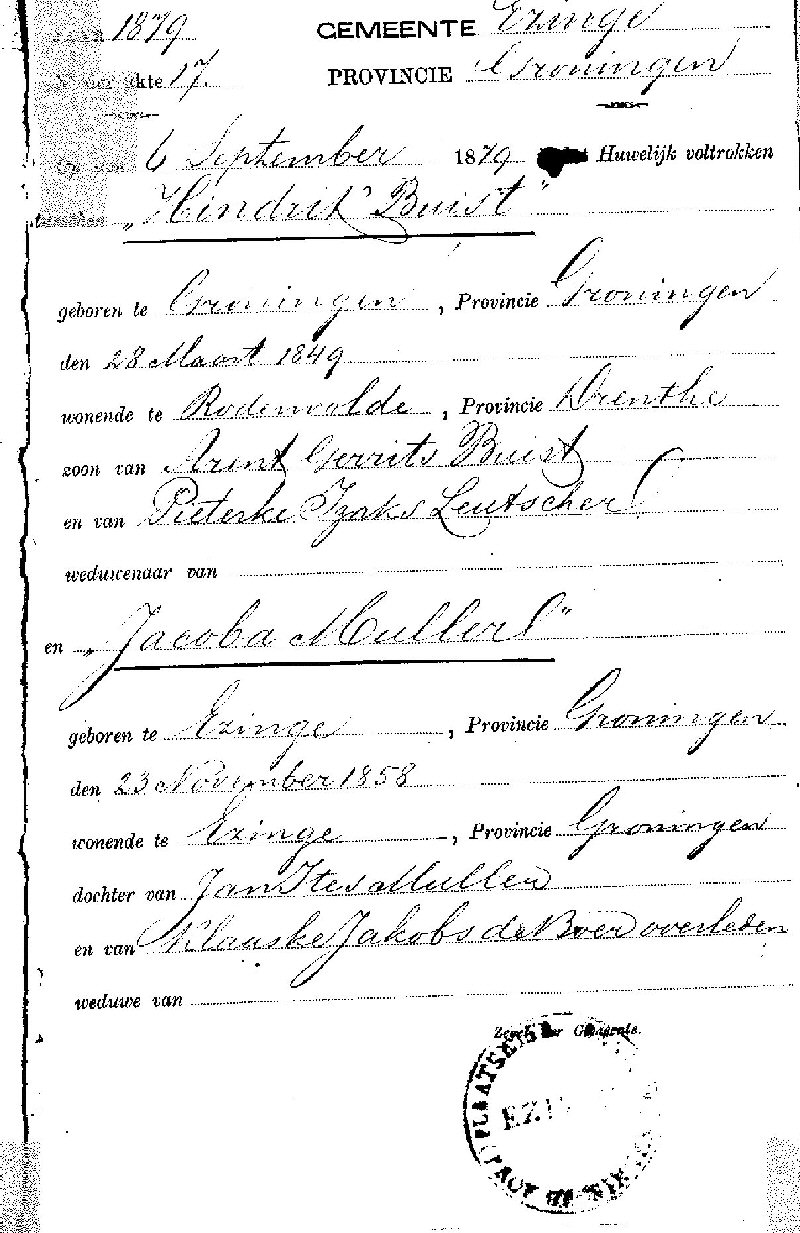 1879 GEMEENTE Ezinge
akte 17. PROVINCIE Groningen
6 September 1879 Huwelijk voltrokken
tusschen „Hindrik Buist"
geboren te Groningen, Provincie Groningen
den 28 Maart 1849
wonende te Roderwolde, Provincie Drenthe
zoon van Arent Gerrits Buist
en van Pieterke Izaks Leutscher
weduwenaar van
en „Jacoba Muller"
geboren te Ezinge, Provincie Groningen
den 23 November 1858
wonende te Ezinge, Provincie Groningen
dochter van Jan Ites Muller
en van Klaaske Jakobs de Boer overleden
weduwe van
Zegel der Gemeente.
PLAATSELIJK